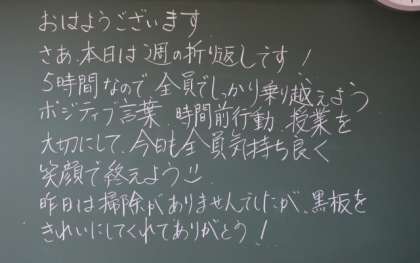 おはようございます
さあ、本日は週の折り返しです！
5時間なので、全員でしっかり乗り越えよう
ポジティブ言葉、時間前行動、授業を
大切にして、今日も全員気持ち良く
笑顔で終えよう
昨日は掃除がありませんでしたが、黒板を
きれいにしてくれてありがとう！